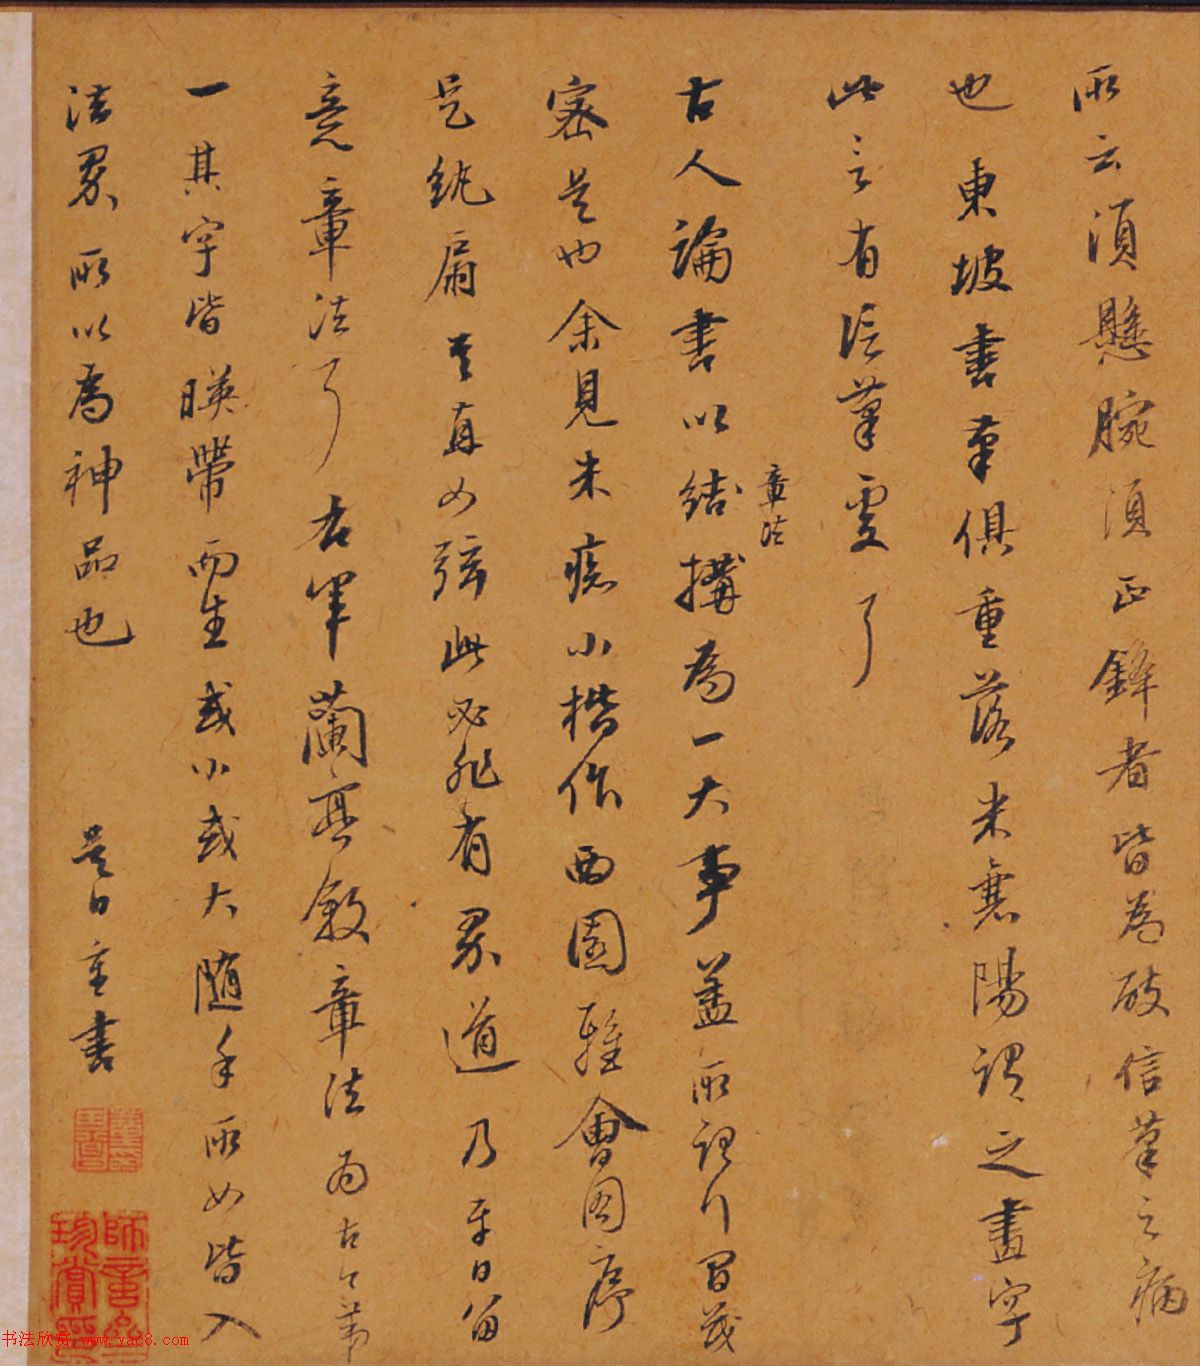 所云須懸腕須正鋒者皆為破信筆之病
也東坡書筆俱重落米襄陽謂之畫字
此言有信筆處了
古人論書以結搆為一大事蓋所謂行間茂
章法
密是也余見米癡小楷作西園雅會圖序
是紈扇其直如弦此必非有界道乃平日留
意章法了右軍蘭亭敘章法為古今第
一其字皆暎帶而生或小或大隨手所如皆入
法界所以為神品也 是日重書
书法欣赏 www.yac8.com